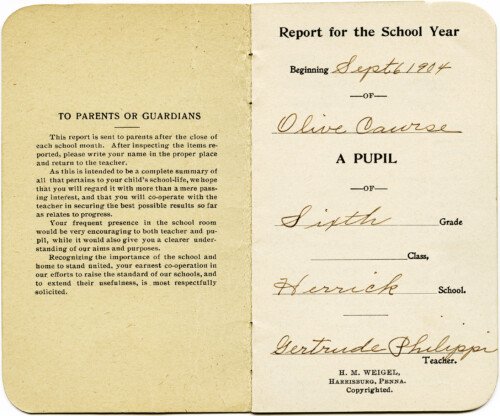 TO PARENTS OR GUARDIANS
This report is sent to parents after the close of
each school month. After inspecting the items re-
ported, please write your name in the proper place
and return to the teacher.
As this is intended to be a complete summary of
all that pertains to your child's school-life, we hope
that you will regard it with more than a mere pass-
ing interest, and that you will co-operate with the
teacher in securing the best possible results so far
as relates to progress.
Your frequent presence in the school room
would be very encouraging to both teacher and pu-
pil, while it would also give you a clearer understand-
ing of our aims and purposes.
Recognizing the importance of the school and
home to stand united, your earnest co-operation in
our efforts to raise the standard of our schools, and
to extend their usefulness, is most respectfully
solicited.
Report for the School Year
Beginning Sept 6 1904
—OF—
Olive Caurse
A PUPIL
—OF—
Sixth Grade
Class,
Herrick School.
Gertrude Philippi
Teacher.
H. M. WEIGEL,
HARRISBURG, PENNA.
Copyrighted.